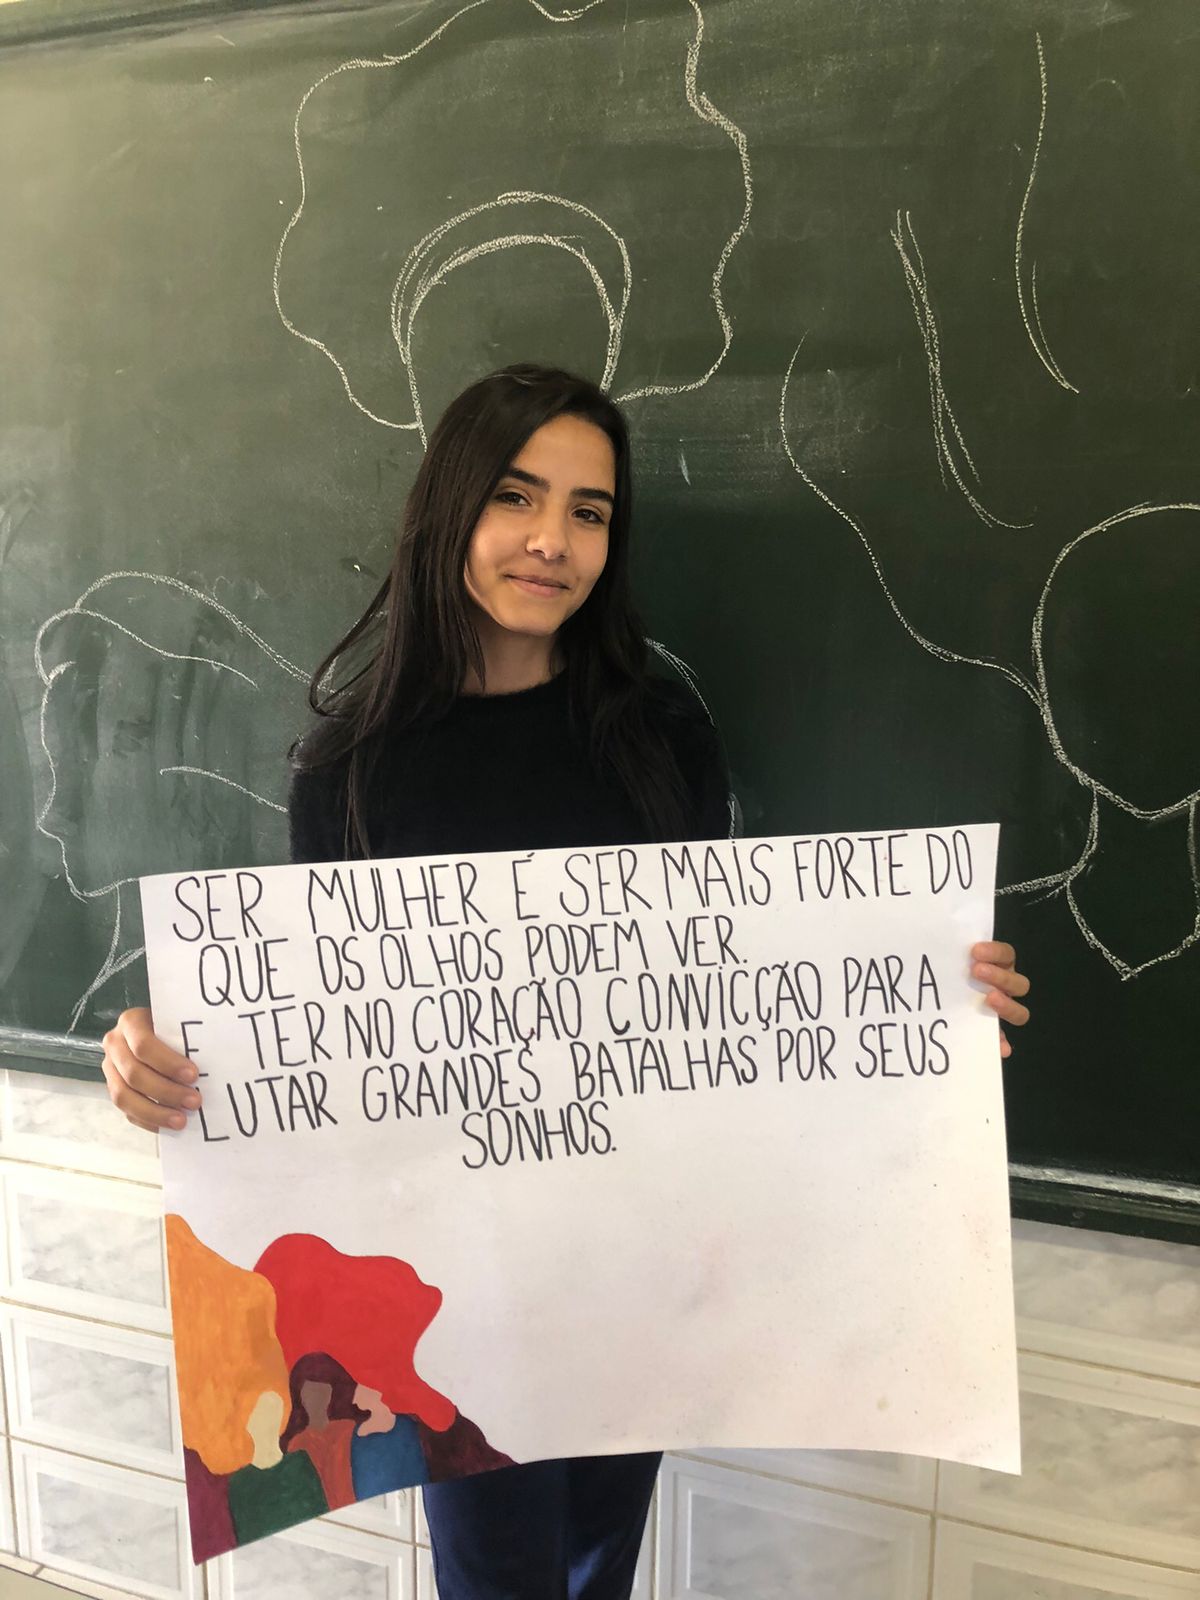 SER MULHER É SER MAIS FORTE DO
QUE OS OLHOS PODEM VER.
E TER NO CORAÇÃO CONVICÇÃO PARA
LUTAR GRANDES BATALHAS POR SEUS
SONHOS.